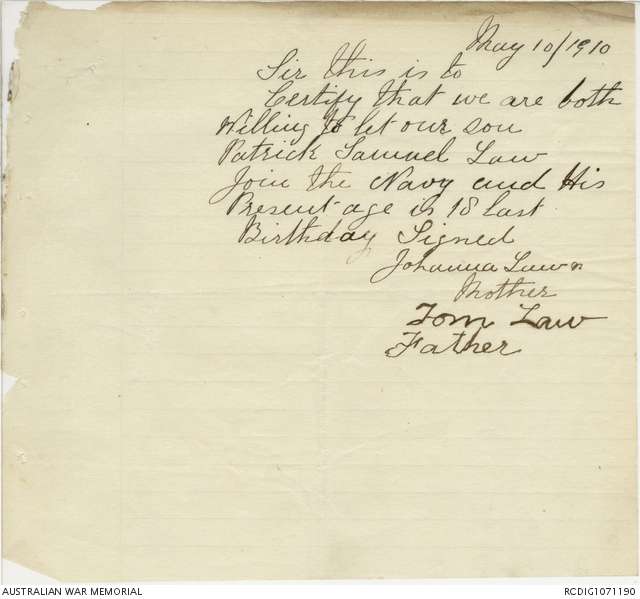 May 10/1910
Sir this is to
Certify that we are both
Willing to let our son
Patrick Samuel Law
Join the Navy and His
Present age is 18 last
Birthday Signed
Johanna Law
Mother
Tom Law
Father
AUSTRALIAN WAR MEMORIAL
RCDIG1071190